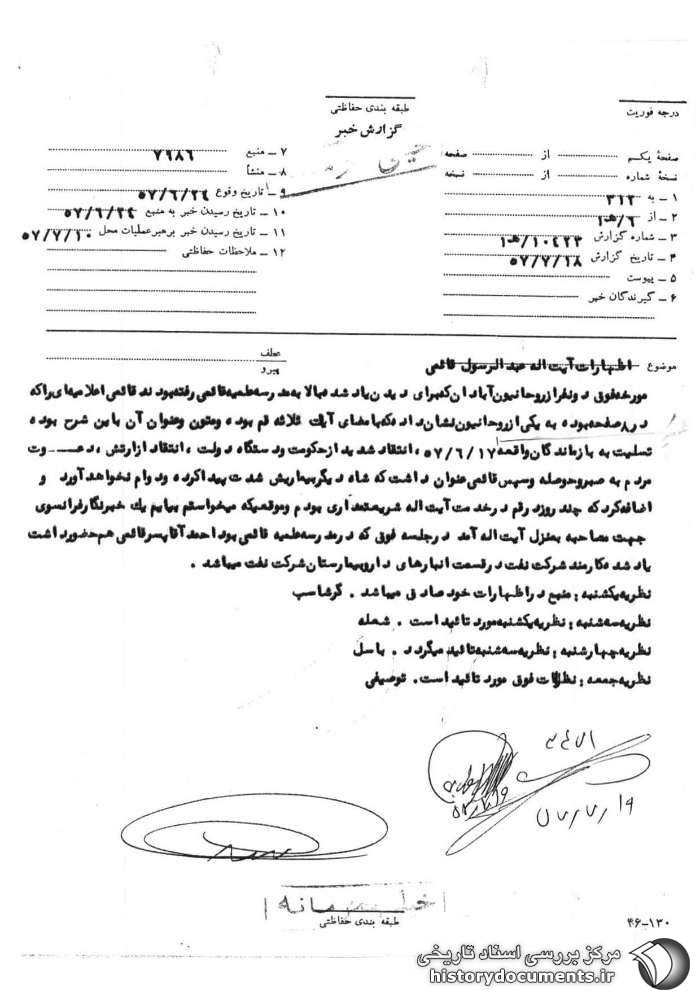 درجه فوریت
طبقه بندی حفاظتی
گزارش خبر
صفحهٔ یکم از صفحه
نسخهٔ شماره از نسخه
۱ ــ به ۳۱۲
۲ ــ از ۶/هـ۱
۳ ــ شماره گزارش ۱۰۴۲۳/هـ۱
۴ ــ تاریخ گزارش ۵۷/۷/۱۸
۵ ــ پیوست
۶ ــ گیرندگان خبر
۷ ــ منبع ۷۹۸۶
۸ ــ منشأ
۹ ــ تاریخ وقوع ۵۷/۶/۲۴
۱۰ ــ تاریخ رسیدن خبر به منبع ۵۷/۶/۲۴
۱۱ ــ تاریخ رسیدن خبر برهبرعملیات محل ۵۷/۷/۱۰
۱۲ ــ ملاحظات حفاظتی
موضوع اظهارات آیت اله عبدالرسول قائمی
عطف
پیرو
مورخه فوق دونفر از روحانیون آبادان که برای دیدن یاد شده بالا به مدرسه علمیه قائمی رفته بودند قائمی اعلامیه‌ای را که
در ۸ صفحه بوده به یکی از روحانیون نشان داده که بامضای آیات ثلاثه قم بوده ومتون وعنوان آن باین شرح بوده
تسلیت به بازماندگان واقعه ۵۷/۶/۱۷ ، انتقاد شدید از حکومت ودستگاه دولت ، انتقاد از ارتش ، دعـــوت
مردم به صبر وحوصله وسپس قائمی عنوان داشت که شاه دیگر بیماریش شدت پیدا کرده ودوام نخواهد آورد و
اضافه کرد که چند روز در قم در خدمت آیت اله شریعتمداری بودم وموقعیکه میخواستم بیایم یك خبرنگار فرانسوی
جهت مصاحبه بمنزل آیت اله آمد در جلسه فوق که در مدرسه علمیه قائمی بود احمد آقا پسر قائمی هم حضور داشت
یاد شده کارمند شرکت نفت در قسمت انبارهای داروبیمارستان شرکت نفت میباشد .
نظریه یکشنبه : منبع در اظهارات خود صادق میباشد . گرشاسب
نظریه سه شنبه : نظریه یکشنبه مورد تائید است . شعله
نظریه چهارشنبه : نظریه سه شنبه تائید میگردد . باسل
نظریه جمعه : نظرات فوق مورد تائید است . توصیفی
۵۷/۷/۱۹
۵۷/۷/۱۹
طبقه بندی حفاظتی
۴۶-۱۳۰
مرکز بررسی اسناد تاریخی
historydocuments.ir